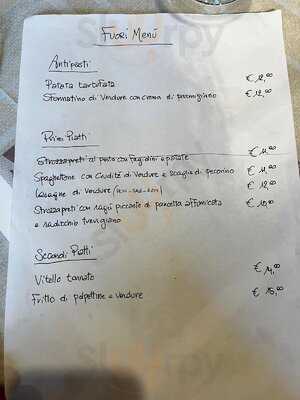 Fuori Menú
Antipasti
Patata tartufata € 12,00
Sformatino di Verdure con crema di parmigiano € 12,00
Primi Piatti
Strozzapreti al pesto con fagiolini e patate € 11,00
Spaghettone con Crudité di Verdure e scaglie di pecorino € 11,00
Lasagne di Verdure € 12,00
Strozzapreti con ragù piccante di pancetta affumicata € 10,00
e radicchio trevigiano
Secondi Piatti
Vitello tonnato € 14,00
Fritto di polpettine e verdure